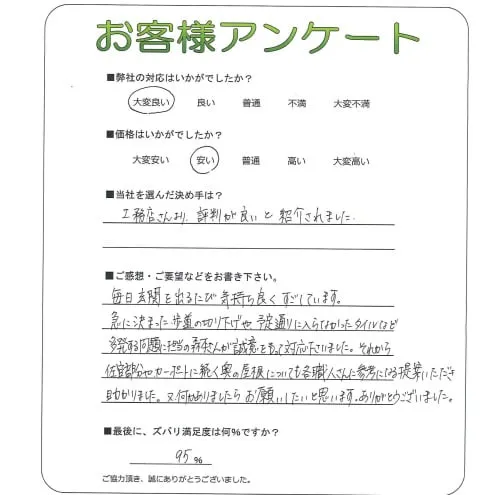 お客様アンケート
■弊社の対応はいかがでしたか?
大変良い 良い 普通 不満 大変不満
■価格はいかがでしたか?
大変安い 安い 普通 高い 大変高い
■当社を選んだ決め手は?
工務店さんより、評判が良いと紹介されました.
■ご感想・ご要望などをお書き下さい。
毎日玄関を出るたび気持ち良くすごしています。
急に決まった歩道の切り下げや予定通りに入らなかったタイルなど
多発する問題に担当の さんが誠意をもって対応下さいました。それから
佐官部分やカーポートに続く奥の屋根についても各職人さんに参考になる提案いただき
助かりました。又何かありましたらお願いしたいと思います。ありがとうございました。
■最後に、ズバリ満足度は何%ですか?
95 %
ご協力頂き、誠にありがとうございました。